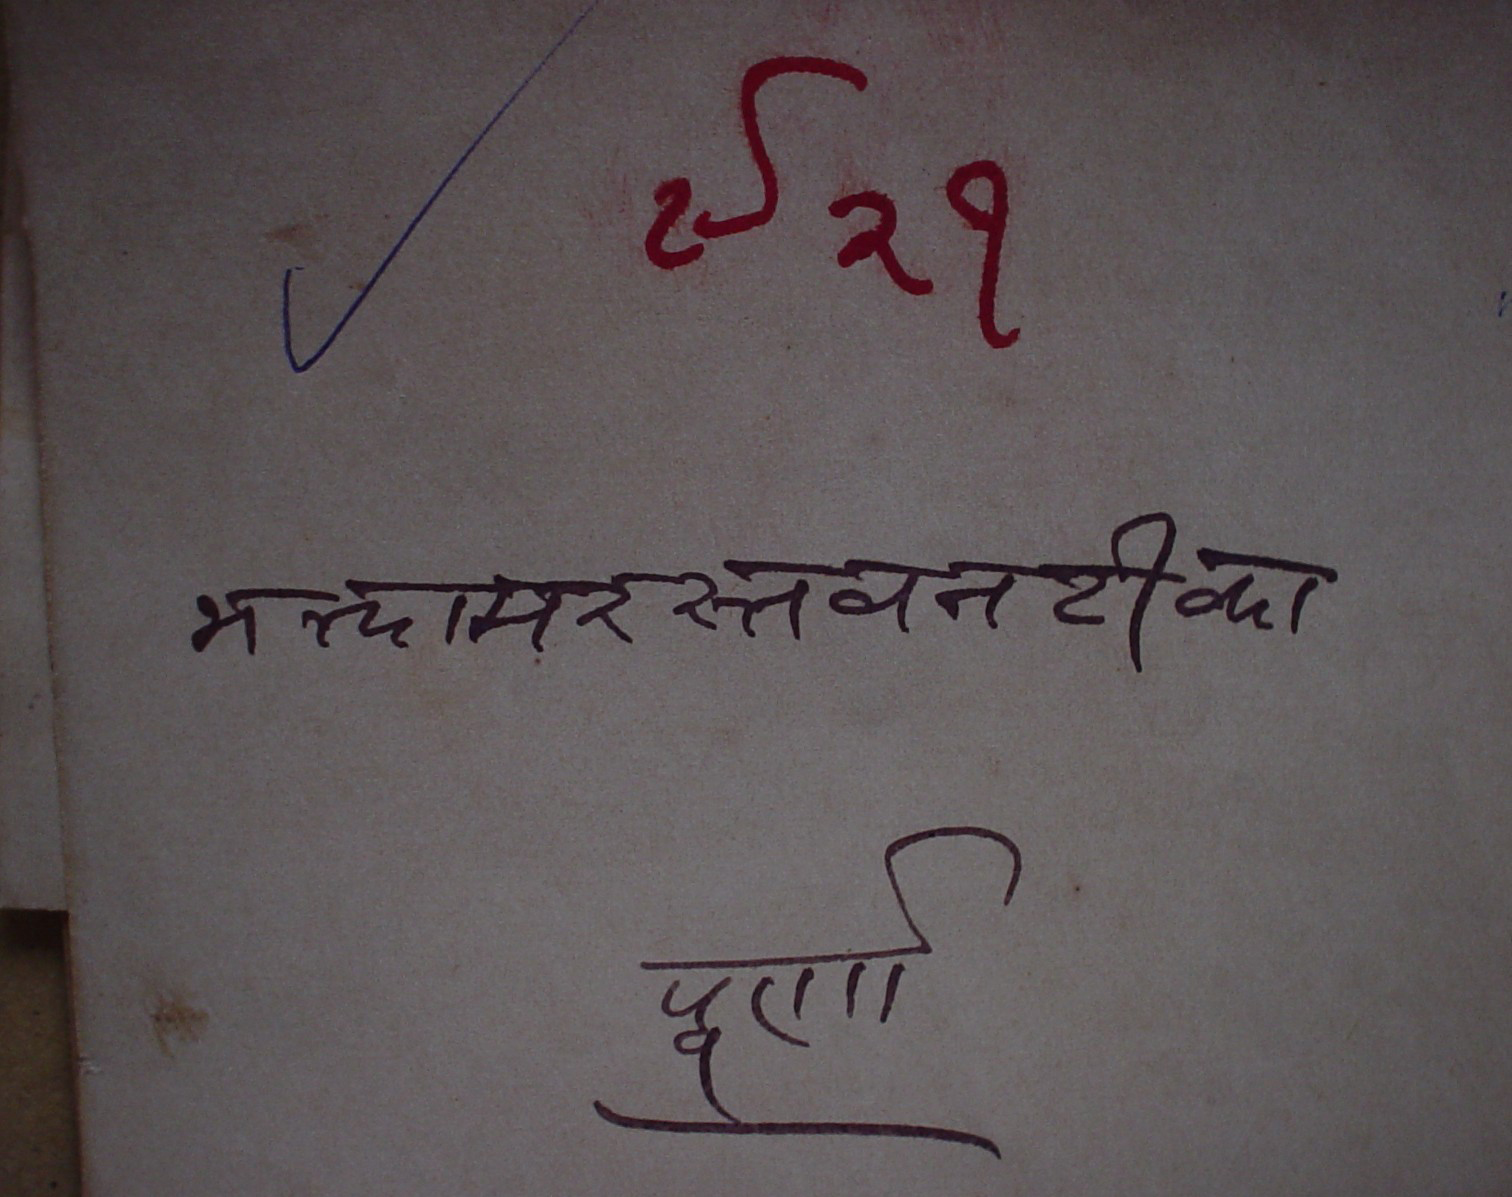 ई २१
भक्तामरस्तवनटीका
पूर्णा